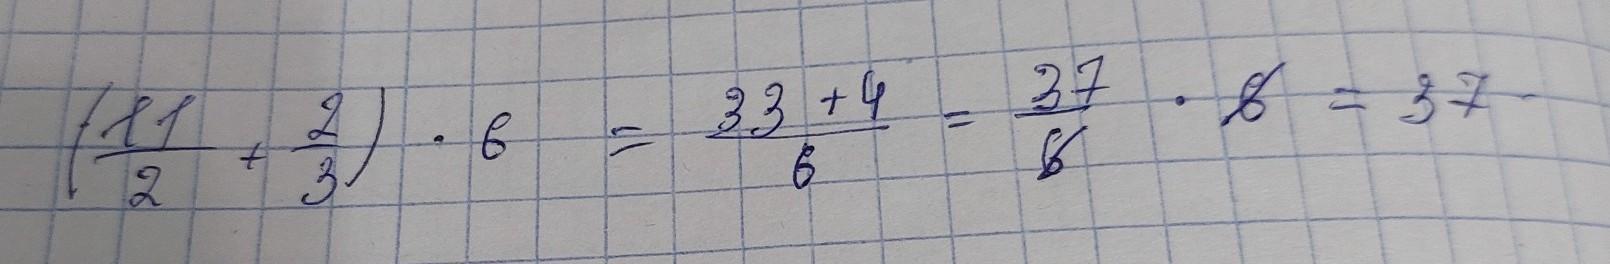 (11/2 + 2/3) · 6 = 33+4/6 = 37/6 · 6 = 37